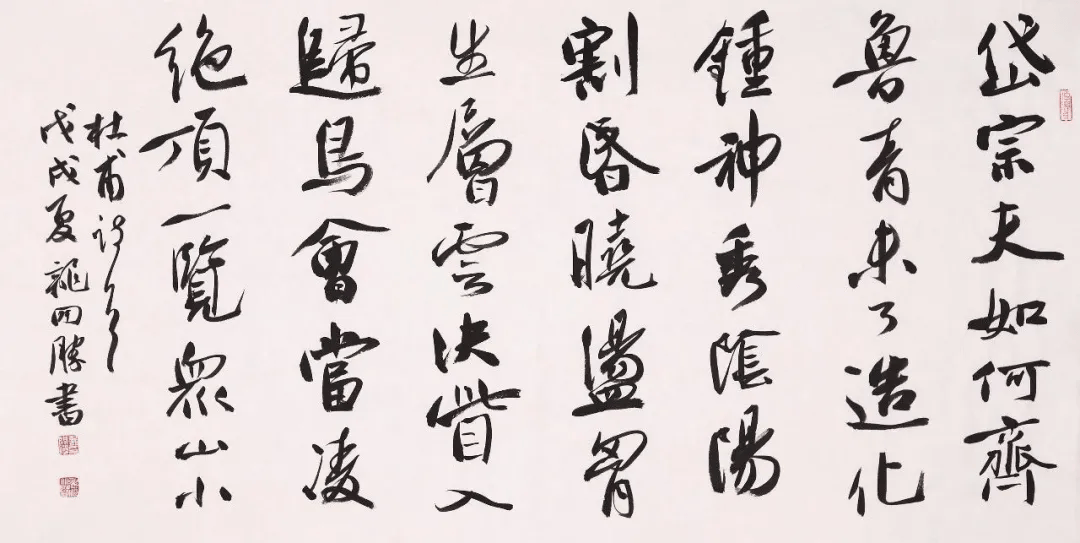 岱宗夫如何齊
魯青未了造化
鍾神秀陰陽
割昏曉盪胷
生層雲決眥入
歸鳥會當凌
絶頂一覽眾山小
杜甫詩
戊戌夏龍四勝書